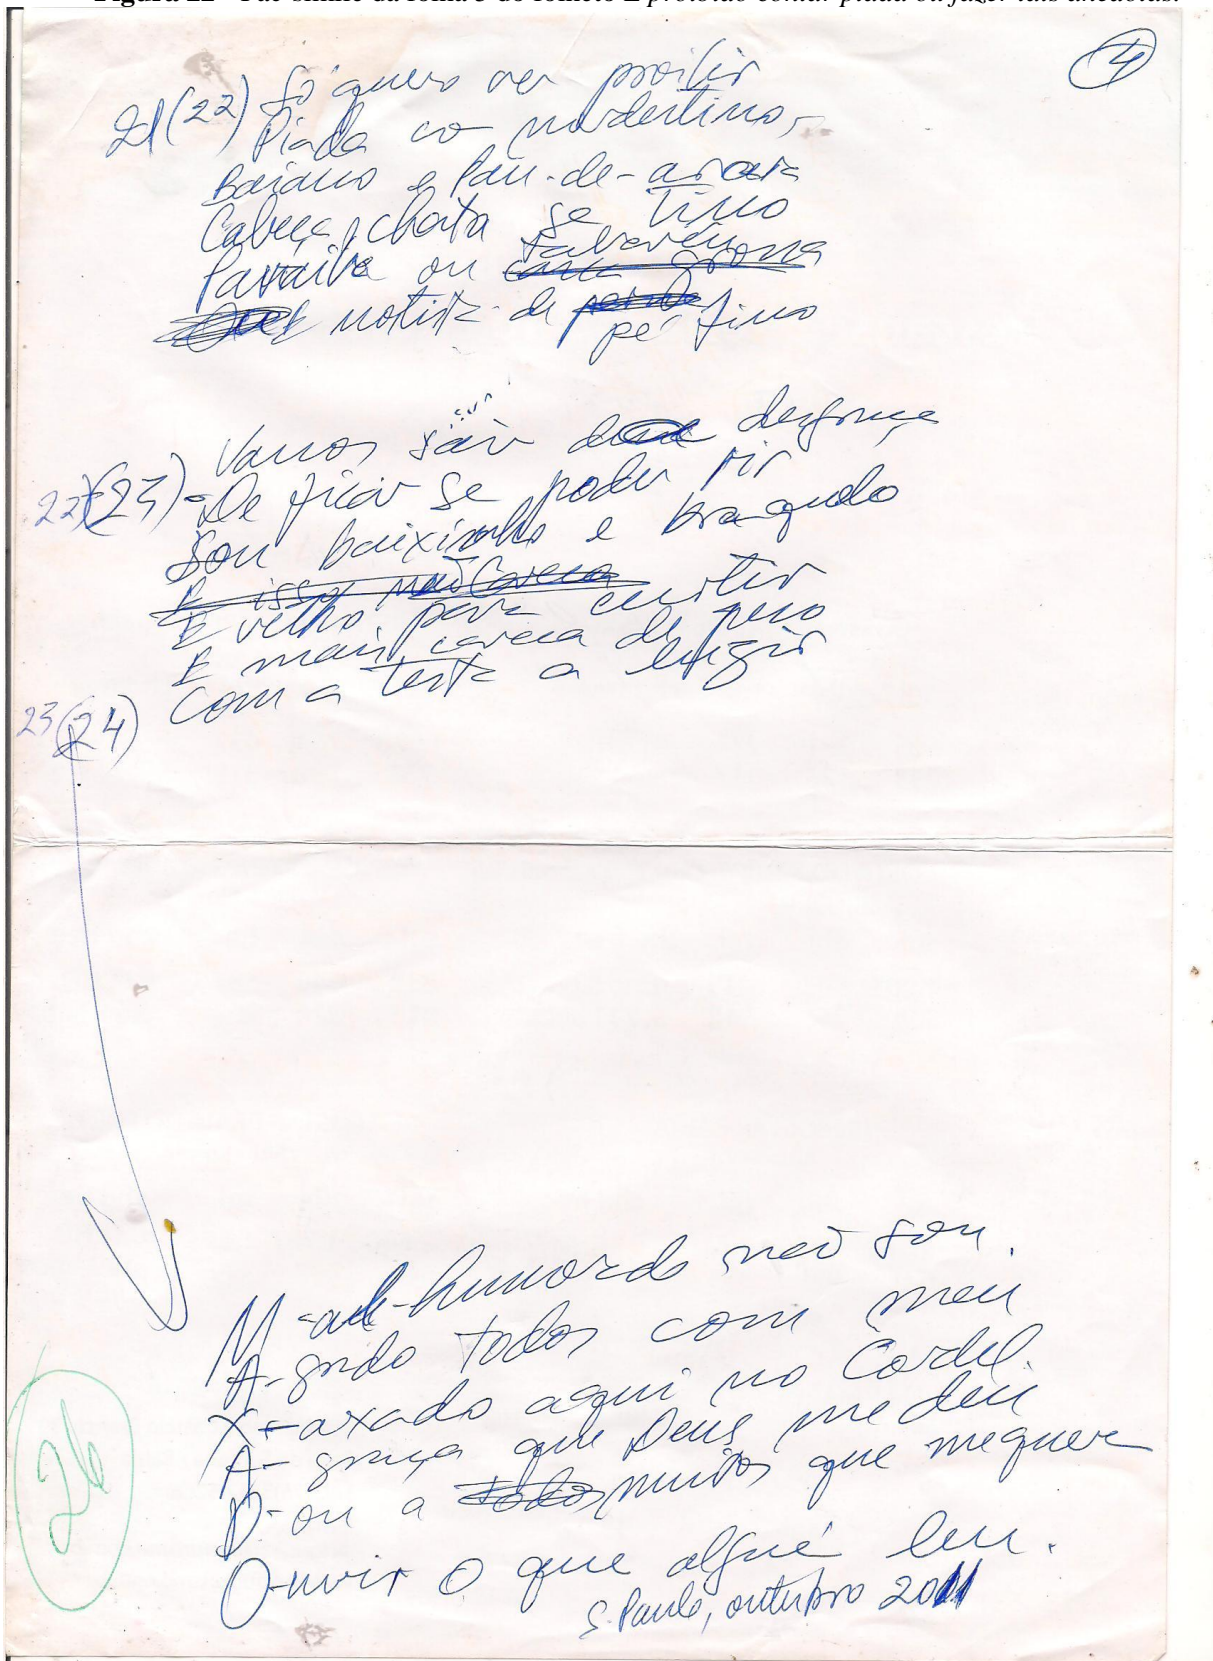 Figura 22 - Fac-símile da folha 3 do folheto É proibido contar piada ou fazer tais anedotas.
4
21(22) Só quero ver proibir
Piada co nordestino,
Baiano e Pau-de-arara
Cabeça chata se tino
Paraíba ou cara grossa tabaréu
notista de pé fino
Vamos sair desgraça
22(23) - De ficar se poder rir
Sou baixinho e branquelo
E isso não Careca
E velho para curtir
E mais careca de peso
Com a testa a luzir
23(24)
M-al-humorado não sou.
A-grado todos com meu
X-axado aqui no Cordel.
A- graça que Deus me deu
D-ou a todos muitos que me quer
O-uvir o que algué leu.
S. Paulo, outubro 2011
26